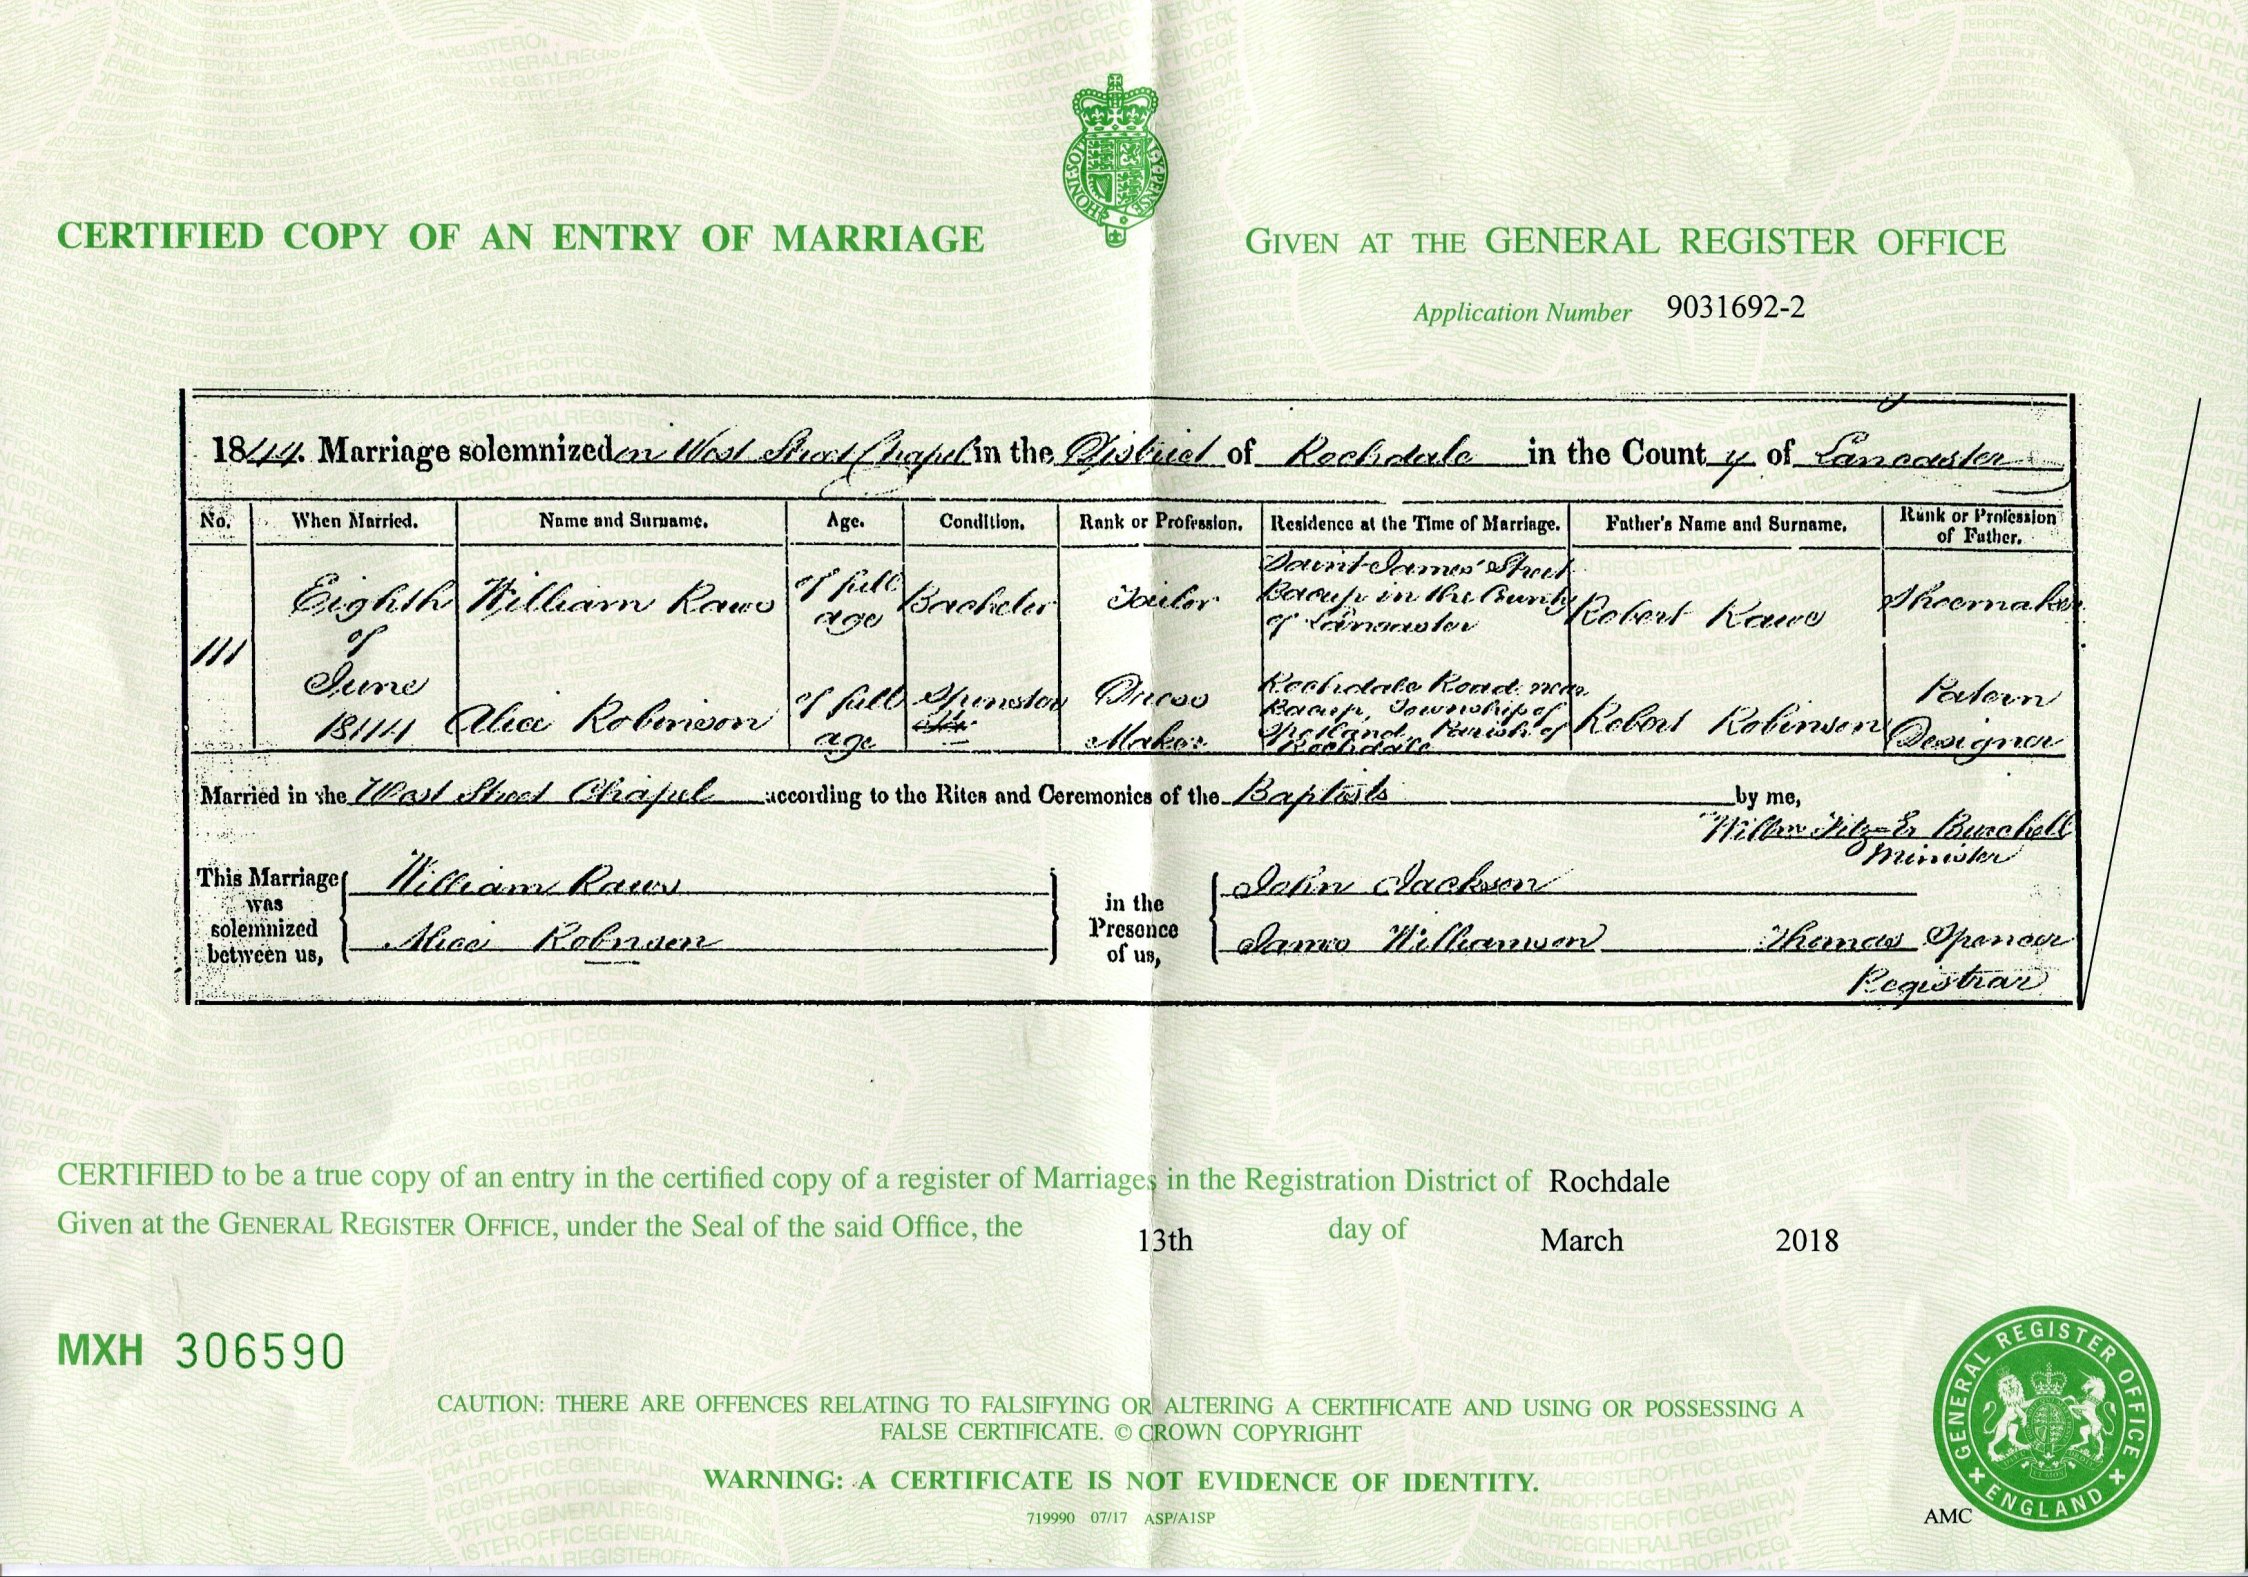 CERTIFIED COPY OF AN ENTRY OF MARRIAGE
GIVEN AT THE GENERAL REGISTER OFFICE
Application Number 9031692-2
1844. Marriage solemnized in West Street Chapel in the District of Rochdale in the County of Lancaster
No. When Married. Name and Surname. Age. Condition. Rank or Profession. Residence at the Time of Marriage. Father's Name and Surname. Rank or Profession of Father.
111 Eighth of June 1844
William Rawe of full age Bachelor Tailor Saint James' Street Bacup in the County of Lancaster Robert Rawe Shoemaker
Alice Robinson of full age Spinster Dress Maker Rochdale Road near Bacup, Township of Spotland, Parish of Rochdale Robert Robinson Patern Designer
Married in the West Street Chapel according to the Rites and Ceremonies of the Baptists by me,
Burchell
Minister
This Marriage was solemnized between us,
William Raws
Alice Robinson
in the Presence of us,
John Jackson
James Williamson Thomas Spencer
Registrar
CERTIFIED to be a true copy of an entry in the certified copy of a register of Marriages in the Registration District of Rochdale
Given at the GENERAL REGISTER OFFICE, under the Seal of the said Office, the 13th day of March 2018
MXH 306590
CAUTION: THERE ARE OFFENCES RELATING TO FALSIFYING OR ALTERING A CERTIFICATE AND USING OR POSSESSING A
FALSE CERTIFICATE. © CROWN COPYRIGHT
WARNING: A CERTIFICATE IS NOT EVIDENCE OF IDENTITY.
719990 07/17 ASP/A1SP
AMC
GENERAL REGISTER OFFICE
ENGLAND